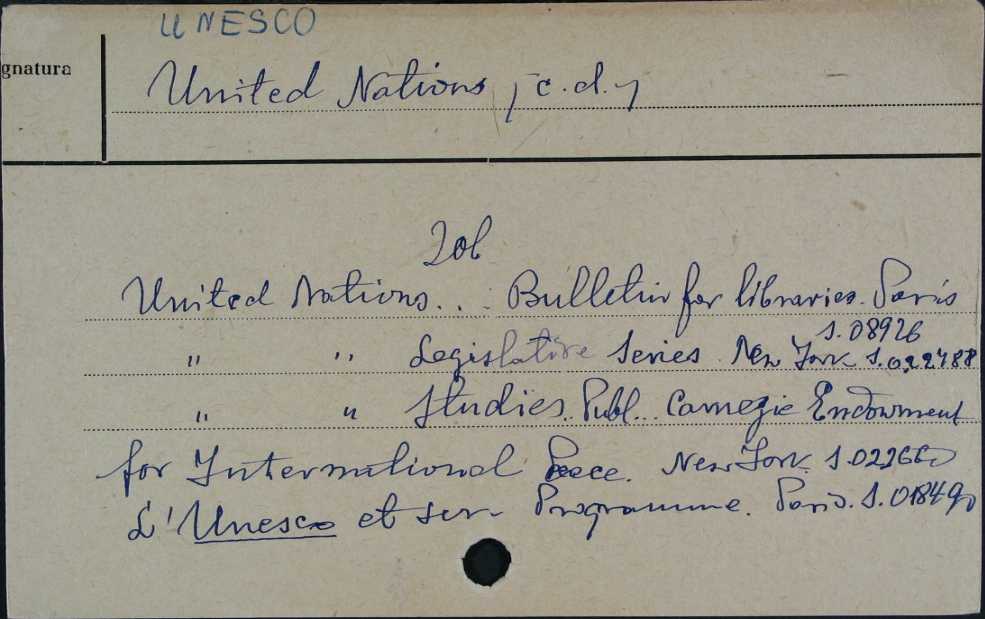 UNESCO
gnatura
United Nations, c.d.
Zob
United Nations... Bulletin for libraries. Paris
S. 08926
" " Legislative Series New York S.022788
" " Studies. Publ. Carnegie Endowment
for International Peece. New York.
L'Unesco et son Programme. Paris. S. 018490